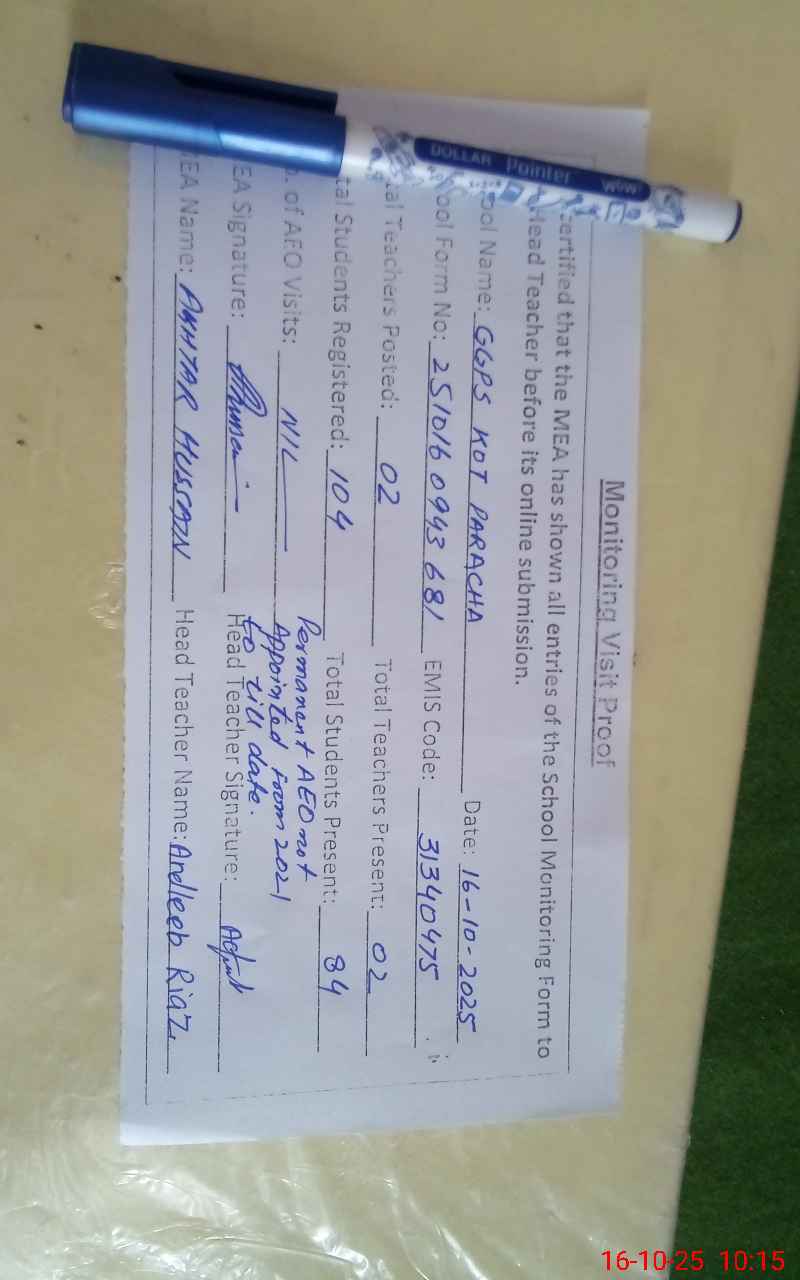 DOLLAR Pointer WOW
Monitoring Visit Proof
certified that the MEA has shown all entries of the School Monitoring Form to
Head Teacher before its online submission.
ool Name: GGPS KOT PARACHA Date: 16-10-2025
ool Form No: 2510160943681 EMIS Code: 31340475
tal Teachers Posted: 02 Total Teachers Present: 02
tal Students Registered: 104 Total Students Present: 84
. of AEO Visits: NIL
Permanent AEO not
Appointed from 2021
to till date.
EA Signature: Head Teacher Signature:
EA Name: AKHTAR HUSSAIN Head Teacher Name: Andleeb Riaz
16-10-25 10:15